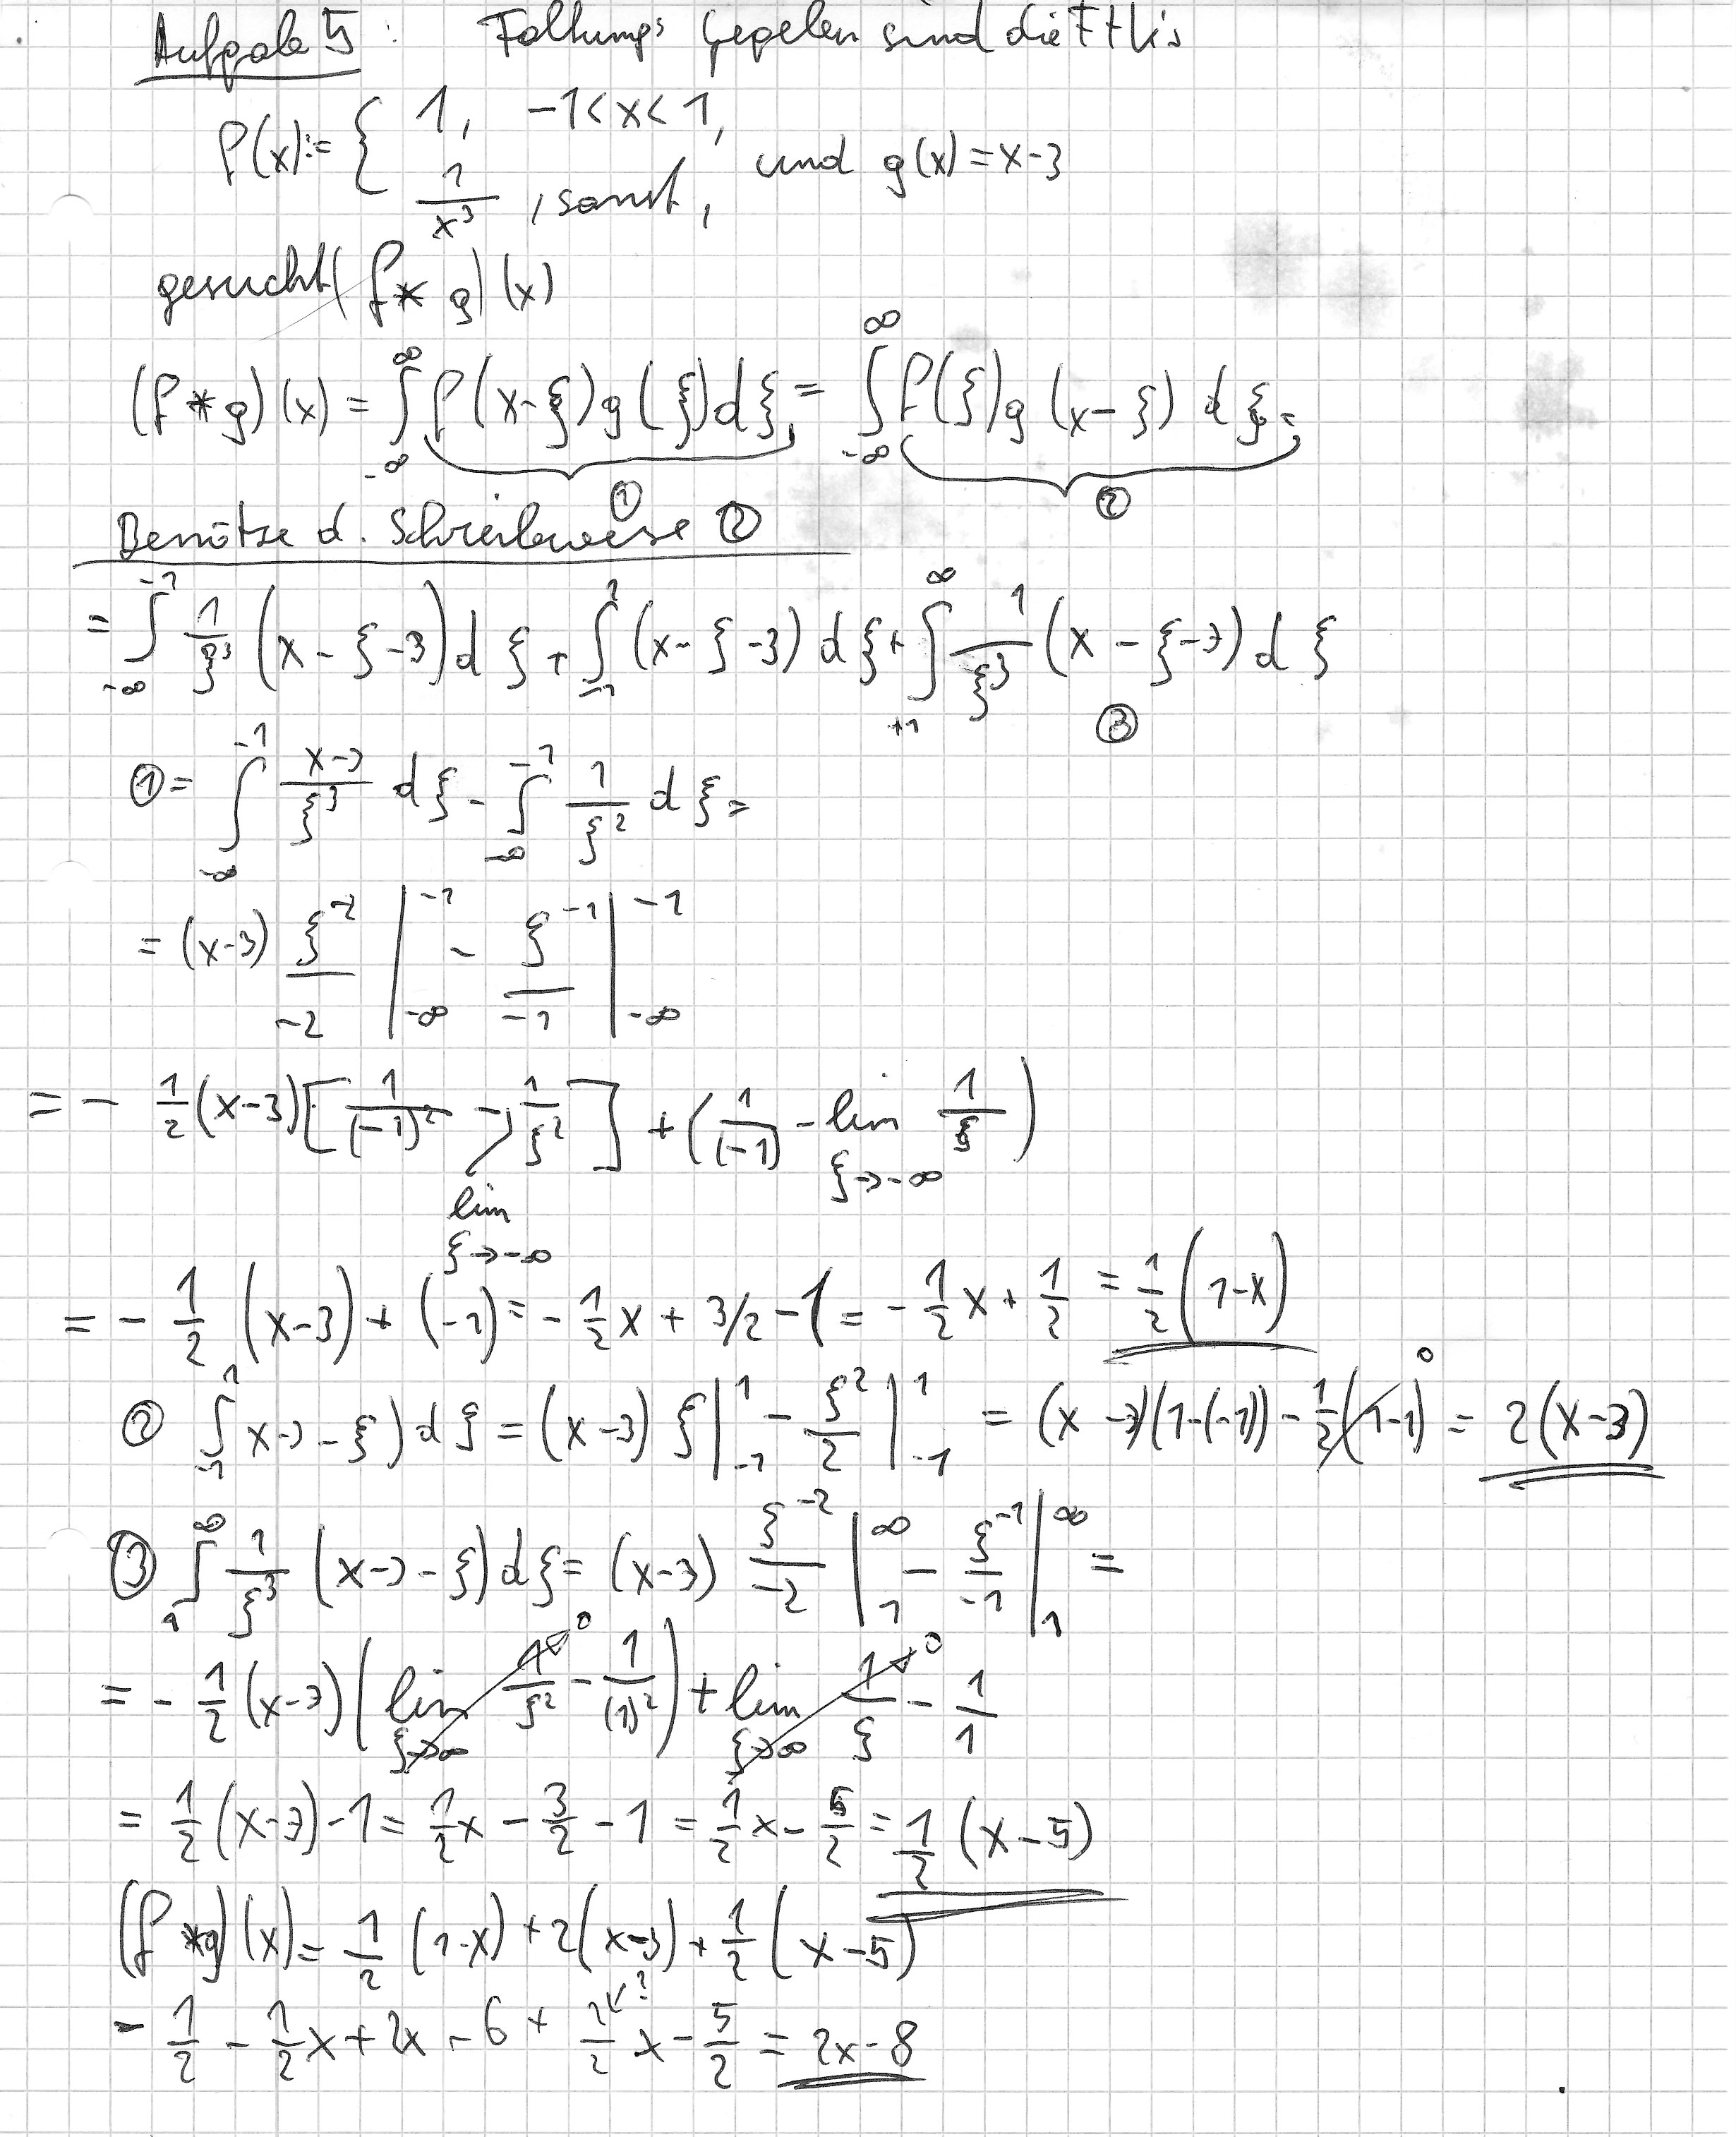 Aufgabe 5: Faltung: Gegeben sind die Fkt's
f(x):= { 1, -1<x<1,
1/x³, sonst, und g(x)=x-3
gesucht (f*g)(x)
(f*g)(x) = ∫_{-∞}^{∞} f(x-ξ)g(ξ)dξ = ∫_{-∞}^{∞} f(ξ)g(x-ξ) dξ =
① ②
Benötze d. Schreibweise ②
= ∫_{-∞}^{-1} 1/ξ³ (x-ξ-3)dξ + ∫_{-1}^{1} (x-ξ-3) dξ + ∫_{+1}^{∞} 1/ξ³ (x-ξ-3) dξ
③
①= ∫_{-∞}^{-1} (x-3)/ξ³ dξ - ∫_{-∞}^{-1} 1/ξ² dξ =
= (x-3) ξ^{-2}/-2 |_{-∞}^{-1} - ξ^{-1}/-1 |_{-∞}^{-1}
= - 1/2 (x-3)[1/(-1)² - lim_{ξ→-∞} 1/ξ²] + (1/(-1) - lim_{ξ→-∞} 1/ξ)
= - 1/2 (x-3) + (-1) = - 1/2 x + 3/2 - 1 = - 1/2 x + 1/2 = 1/2 (1-x)
② ∫_{-1}^{1} x-3-ξ)dξ = (x-3) ξ|_{-1}^{1} - ξ²/2 |_{-1}^{1} = (x-3)(1-(-1)) - 1/2 (1-1) 0 = 2(x-3)
③ ∫_{1}^{∞} 1/ξ³ (x-3-ξ)dξ = (x-3) ξ^{-2}/-2 |_{1}^{∞} - ξ^{-1}/-1 |_{1}^{∞} =
= - 1/2 (x-3)(lim_{ξ→∞} 1/ξ² 0 - 1/(1)²) + lim_{ξ→∞} 1/ξ 0 - 1/1
= 1/2 (x-3) - 1 = 1/2 x - 3/2 - 1 = 1/2 x - 5/2 = 1/2 (x-5)
(f*g)(x) = 1/2 (1-x) + 2(x-3) + 1/2 (x-5)
= 1/2 - 1/2 x + 2x - 6 + 1/2 x - 5/2 = 2x-8